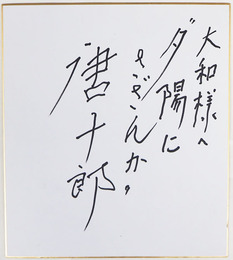 大和様へ
夕陽に
さざんか。
唐十郎